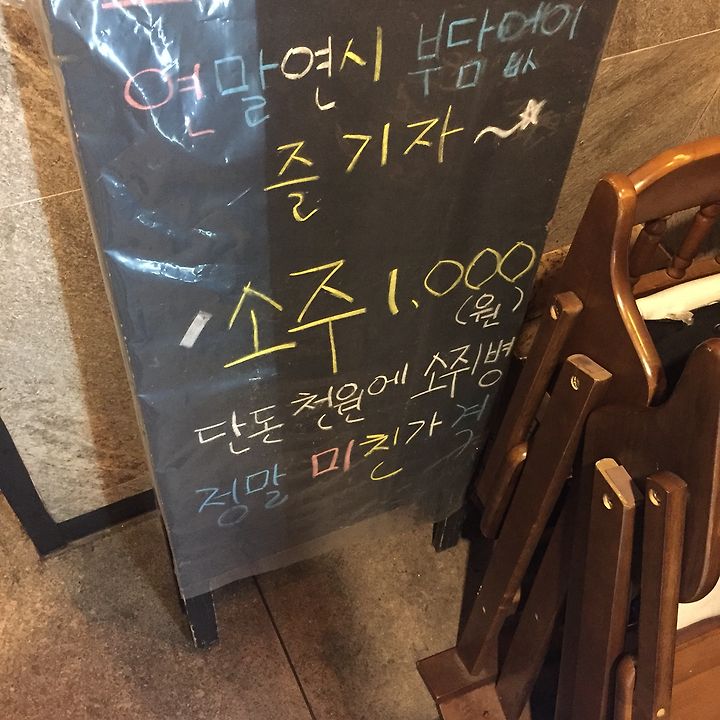 연말연시 부담없이
즐기자~
소주 1.000
(원)
단돈 천원에 소주1병
정말 미친가격